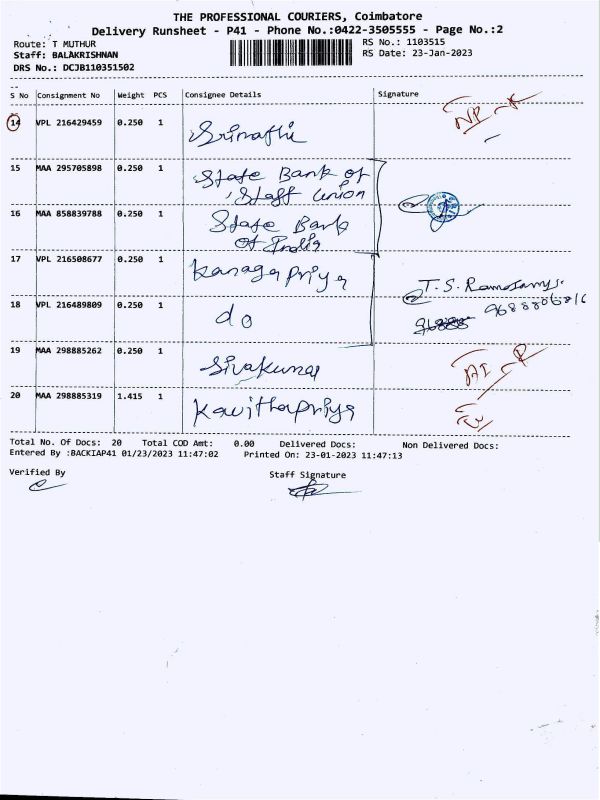 THE PROFESSIONAL COURIERS, Coimbatore
Delivery Runsheet - P41 - Phone No.:0422-3505555 - Page No.:2
Route: T MUTHUR
RS No.: 1103515
Staff: BALAKRISHNAN
RS Date: 23-Jan-2023
DRS No.: DCJB110351502
S No Consignment No Weight PCS Consignee Details Signature
14 VPL 216429459 0.250 1 Srinathi
15 MAA 295705898 0.250 1 State Bank of
Staff Union
16 MAA 858839788 0.250 1 State Bank
of India
17 VPL 216508677 0.250 1 Kanaga Priya
T.S. Ramasamy.
9688806816
18 VPL 216489809 0.250 1 do
19 MAA 298885262 0.250 1 Sivakumar
20 MAA 298885319 1.415 1 Kavithapriya
Total No. Of Docs: 20 Total COD Amt: 0.00 Delivered Docs: Non Delivered Docs:
Entered By :BACKIAP41 01/23/2023 11:47:02 Printed On: 23-01-2023 11:47:13
Verified By Staff Signature